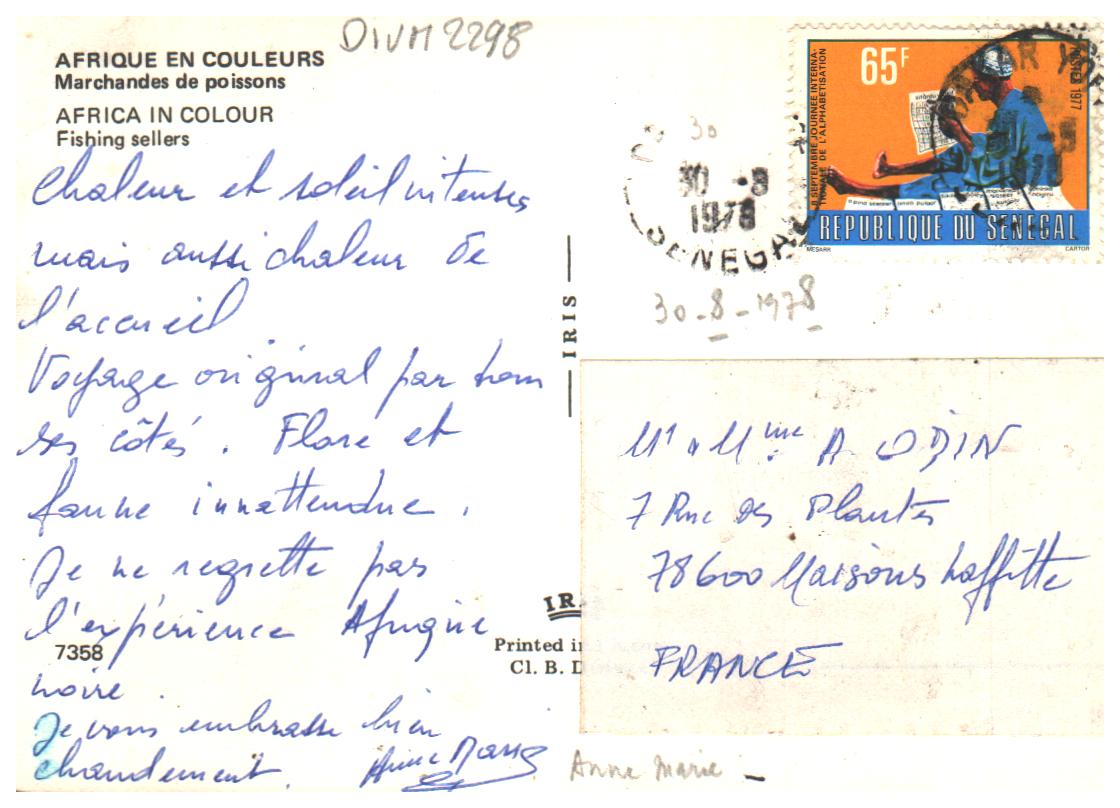 DIVM 2298
AFRIQUE EN COULEURS
Marchandes de poissons
AFRICA IN COLOUR
Fishing sellers
Chaleur et soleil intenses
mais aussi chaleur de
l'accueil
Voyage original par tous
ses côtés. Flore et
faune innattendue.
Je ne regrette pas
l'expérience Afrique
7358
noire.
Je vous embrasse bien
chaudement.
Anne Marie
IRIS
IR
Printed in
Cl. B. D
65F
8 SEPTEMBRE JOURNÉE INTERNA-
TIONALE DE L'ALPHABÉTISATION
POSTES 1977
REPUBLIQUE DU SENEGAL
MESARR
CARTOR
30
30 -8
1978
SENEGAL
30-8-1978
Mr & Mme A ODIN
7 Rue des Plantes
78600 Maisons Laffitte
FRANCE
Anne Marie